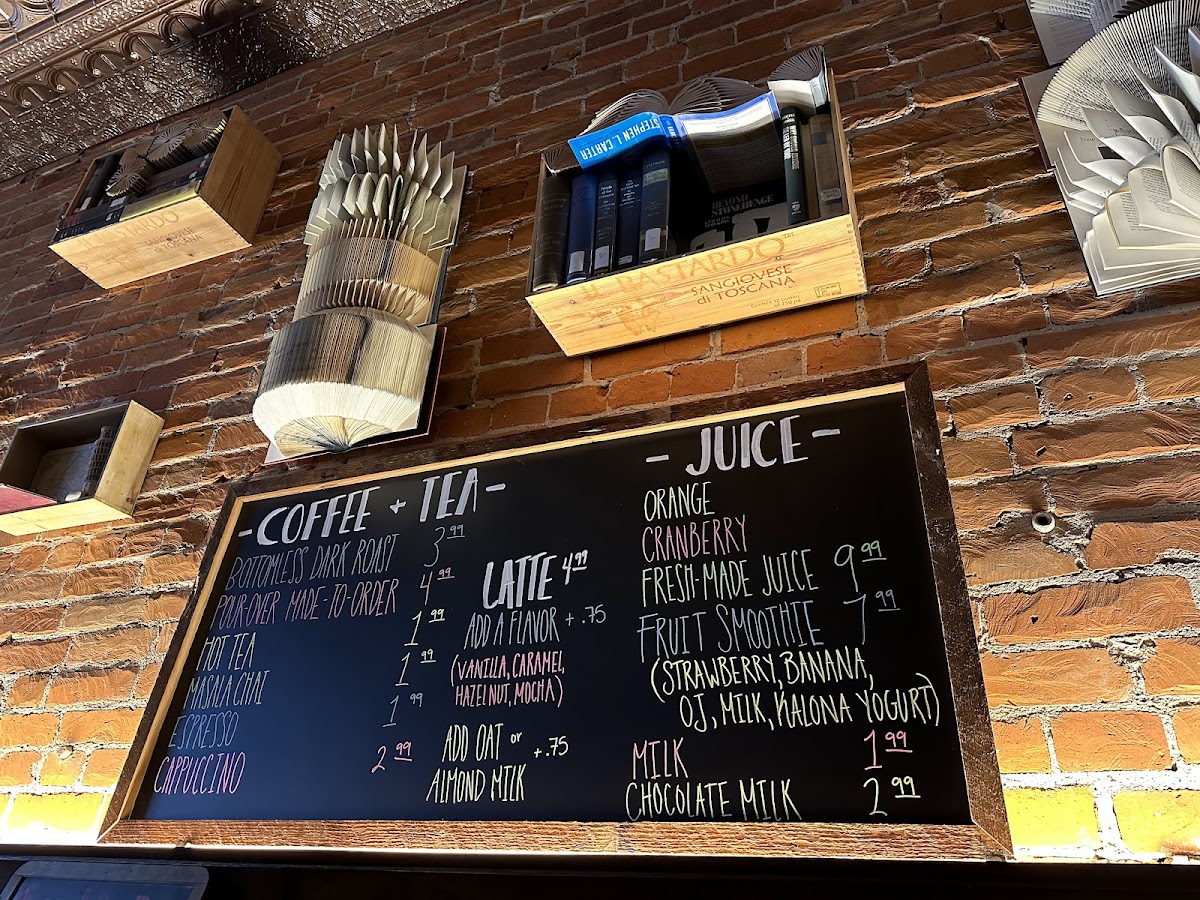 STEPHEN L. CARTER
BEYOND
STONEHENGE
IL BASTARDO
SANGIOVESE
di TOSCANA
- COFFEE + TEA -
BOTTOMLESS DARK ROAST 3.99
POUR-OVER MADE-TO-ORDER 4.99
HOT TEA 1.99
MASALA CHAI 1.99
ESPRESSO 1.99
CAPPUCCINO 2.99
LATTE 4.99
ADD A FLAVOR +.75
(VANILLA, CARAMEL,
HAZELNUT, MOCHA)
ADD OAT or
ALMOND MILK +.75
- JUICE -
ORANGE
CRANBERRY
FRESH-MADE JUICE 9.99
FRUIT SMOOTHIE 7.99
(STRAWBERRY, BANANA,
OJ, MILK, KALONA YOGURT)
MILK 1.99
CHOCOLATE MILK 2.99